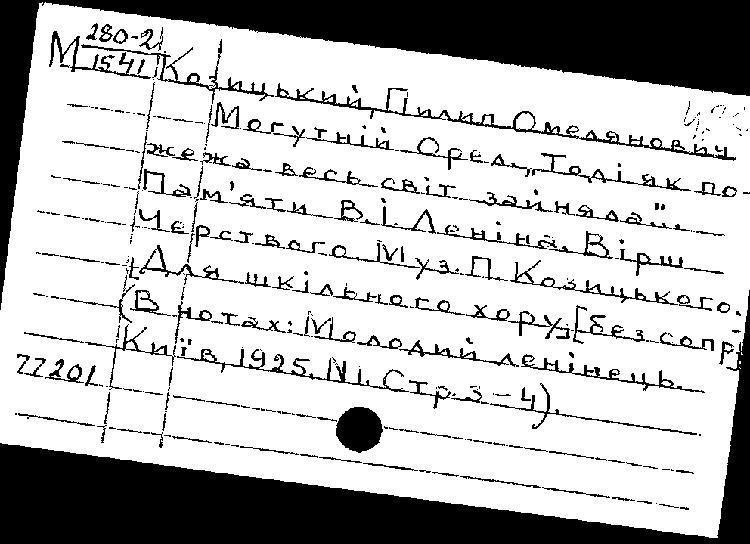 М 280-2
1541
Козицький, Пилип Омелянович
Могутній Орел. „Тоді як по-
жежа весь світ зайняла"..
Пам'яти В.І. Леніна. Вірш
Черствого. Муз. П. Козицького.
[Для шкільного хору] [без сопр]
(В нотах: Молодий ленінець.
Київ, 1925. N1. Стр. 3-4).
77201